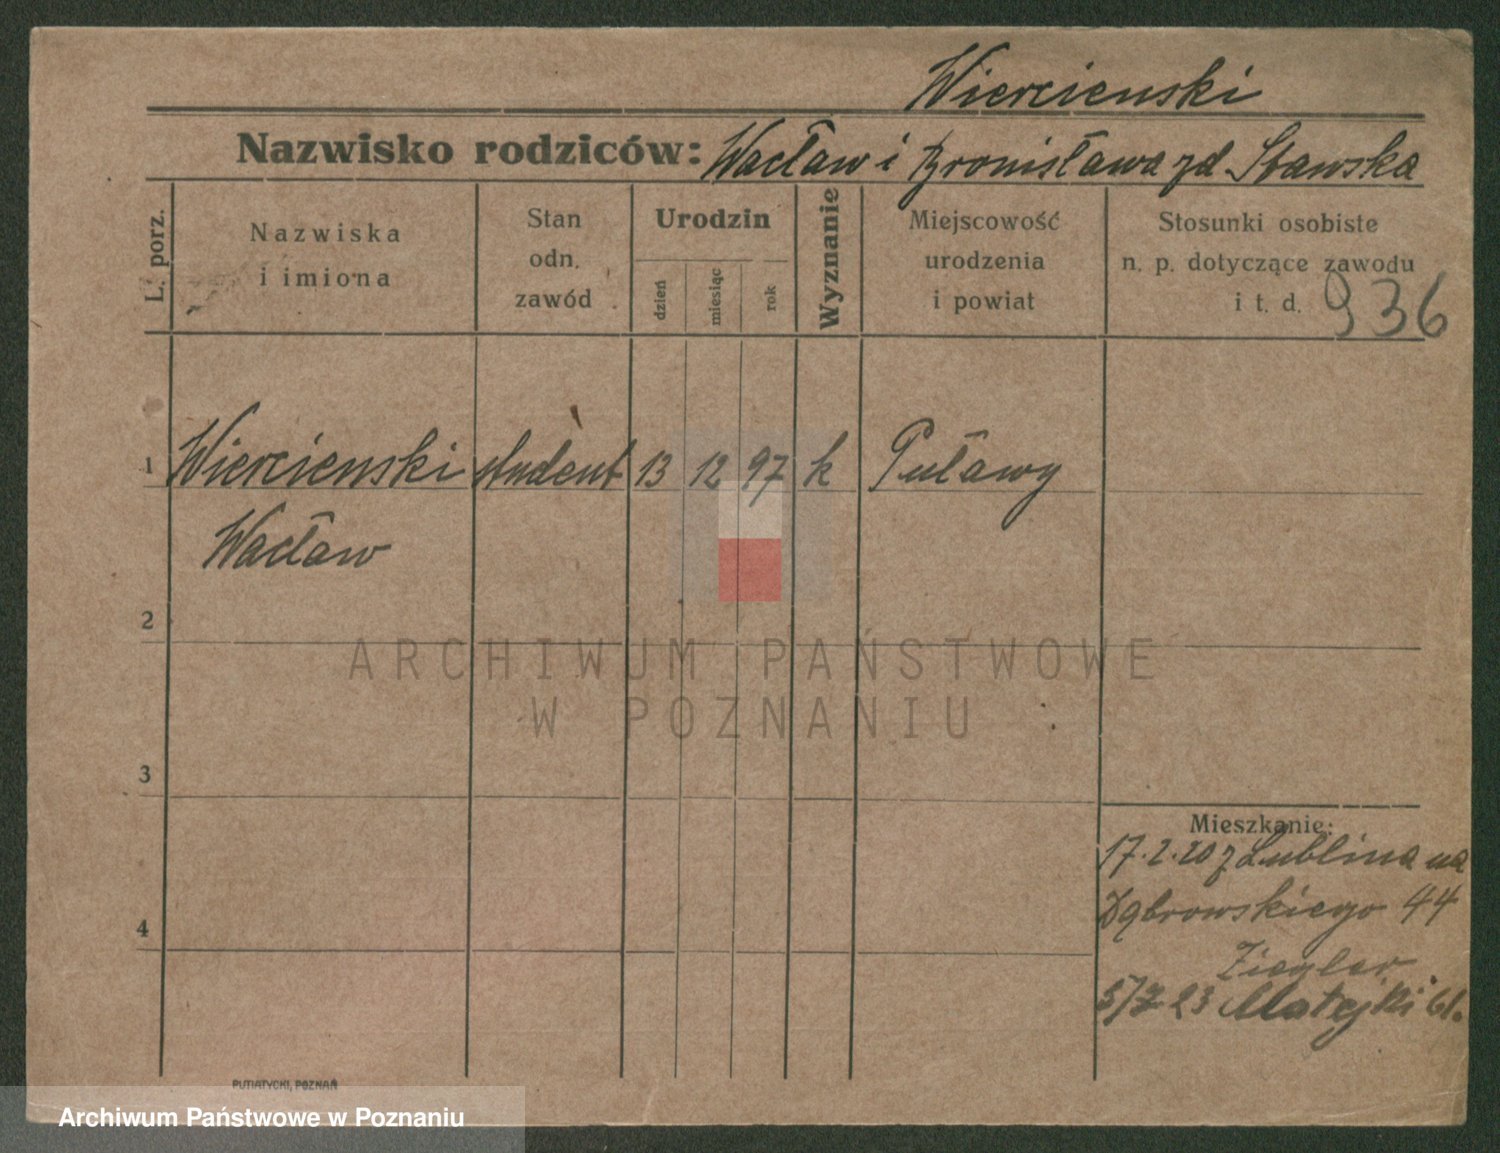 Wiercienski
Nazwisko rodziców: Wacław i Bronisława zd. Stawska
L. porz.
Nazwiska
i imiona
Stan
odn.
zawód
Urodzin
dzień
miesiąc
rok
Wyznanie
Miejscowość
urodzenia
i powiat
Stosunki osobiste
n. p. dotyczące zawodu
i t. d. 936
1 Wiercienski student 13 12 97 k Puławy
Wacław
2
ARCHIWUM PAŃSTWOWE
W POZNANIU
3
Mieszkanie:
17.2.20 z Lublina na
Dąbrowskiego 44
4
Ziegler
23 Matejki 61.
PUTIATYCKI, POZNAŃ
Archiwum Państwowe w Poznaniu